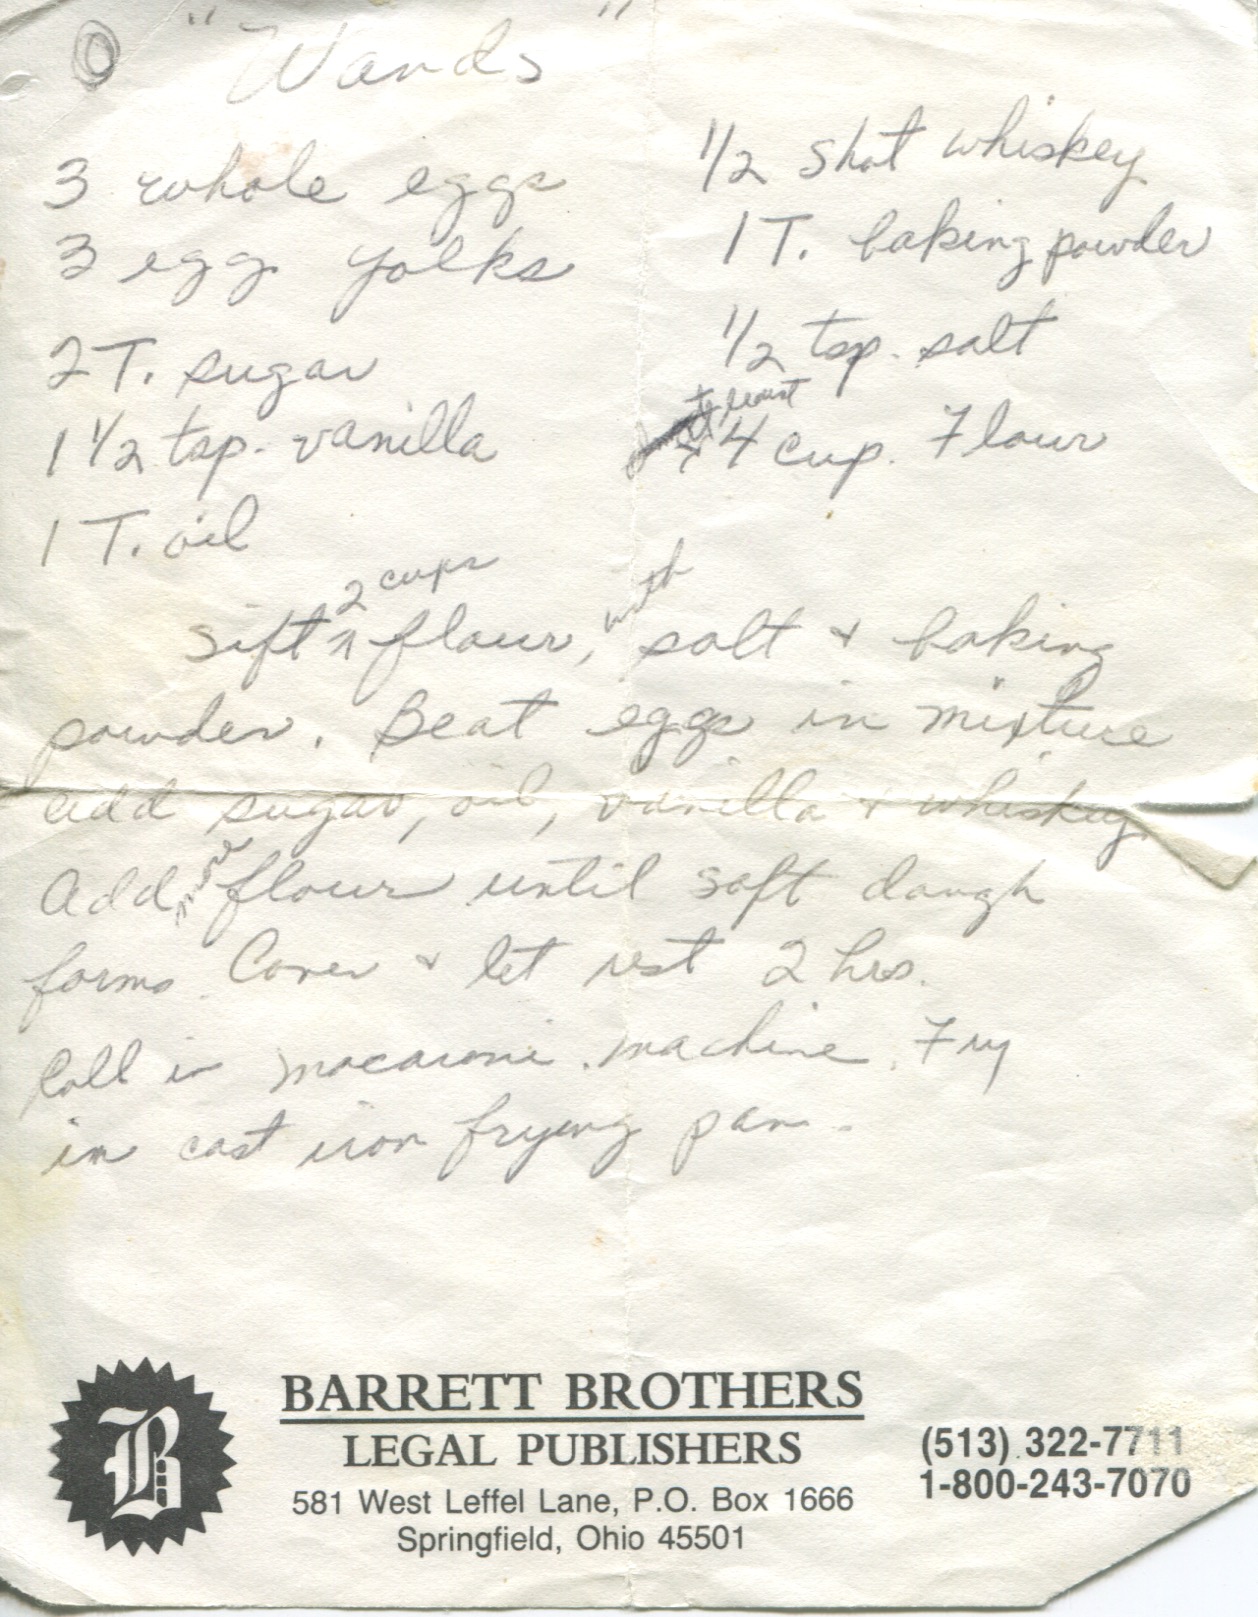 "Wands"
3 whole eggs
3 egg yolks
2 T. sugar
1 1/2 tsp. vanilla
1 T. oil
1/2 shot whiskey
1 T. baking powder
1/2 tsp. salt
at least
4 cup. Flour
2 cups with
Sift ^ flour, salt + baking
powder. Beat eggs in mixture
add sugar, oil, vanilla + whiskey
Add more flour until soft dough
forms. Cover + let rest 2 hrs.
Roll in macaroni machine. Fry
in cast iron frying pan.
B
BARRETT BROTHERS
LEGAL PUBLISHERS
581 West Leffel Lane, P.O. Box 1666
Springfield, Ohio 45501
(513) 322-7711
1-800-243-7070